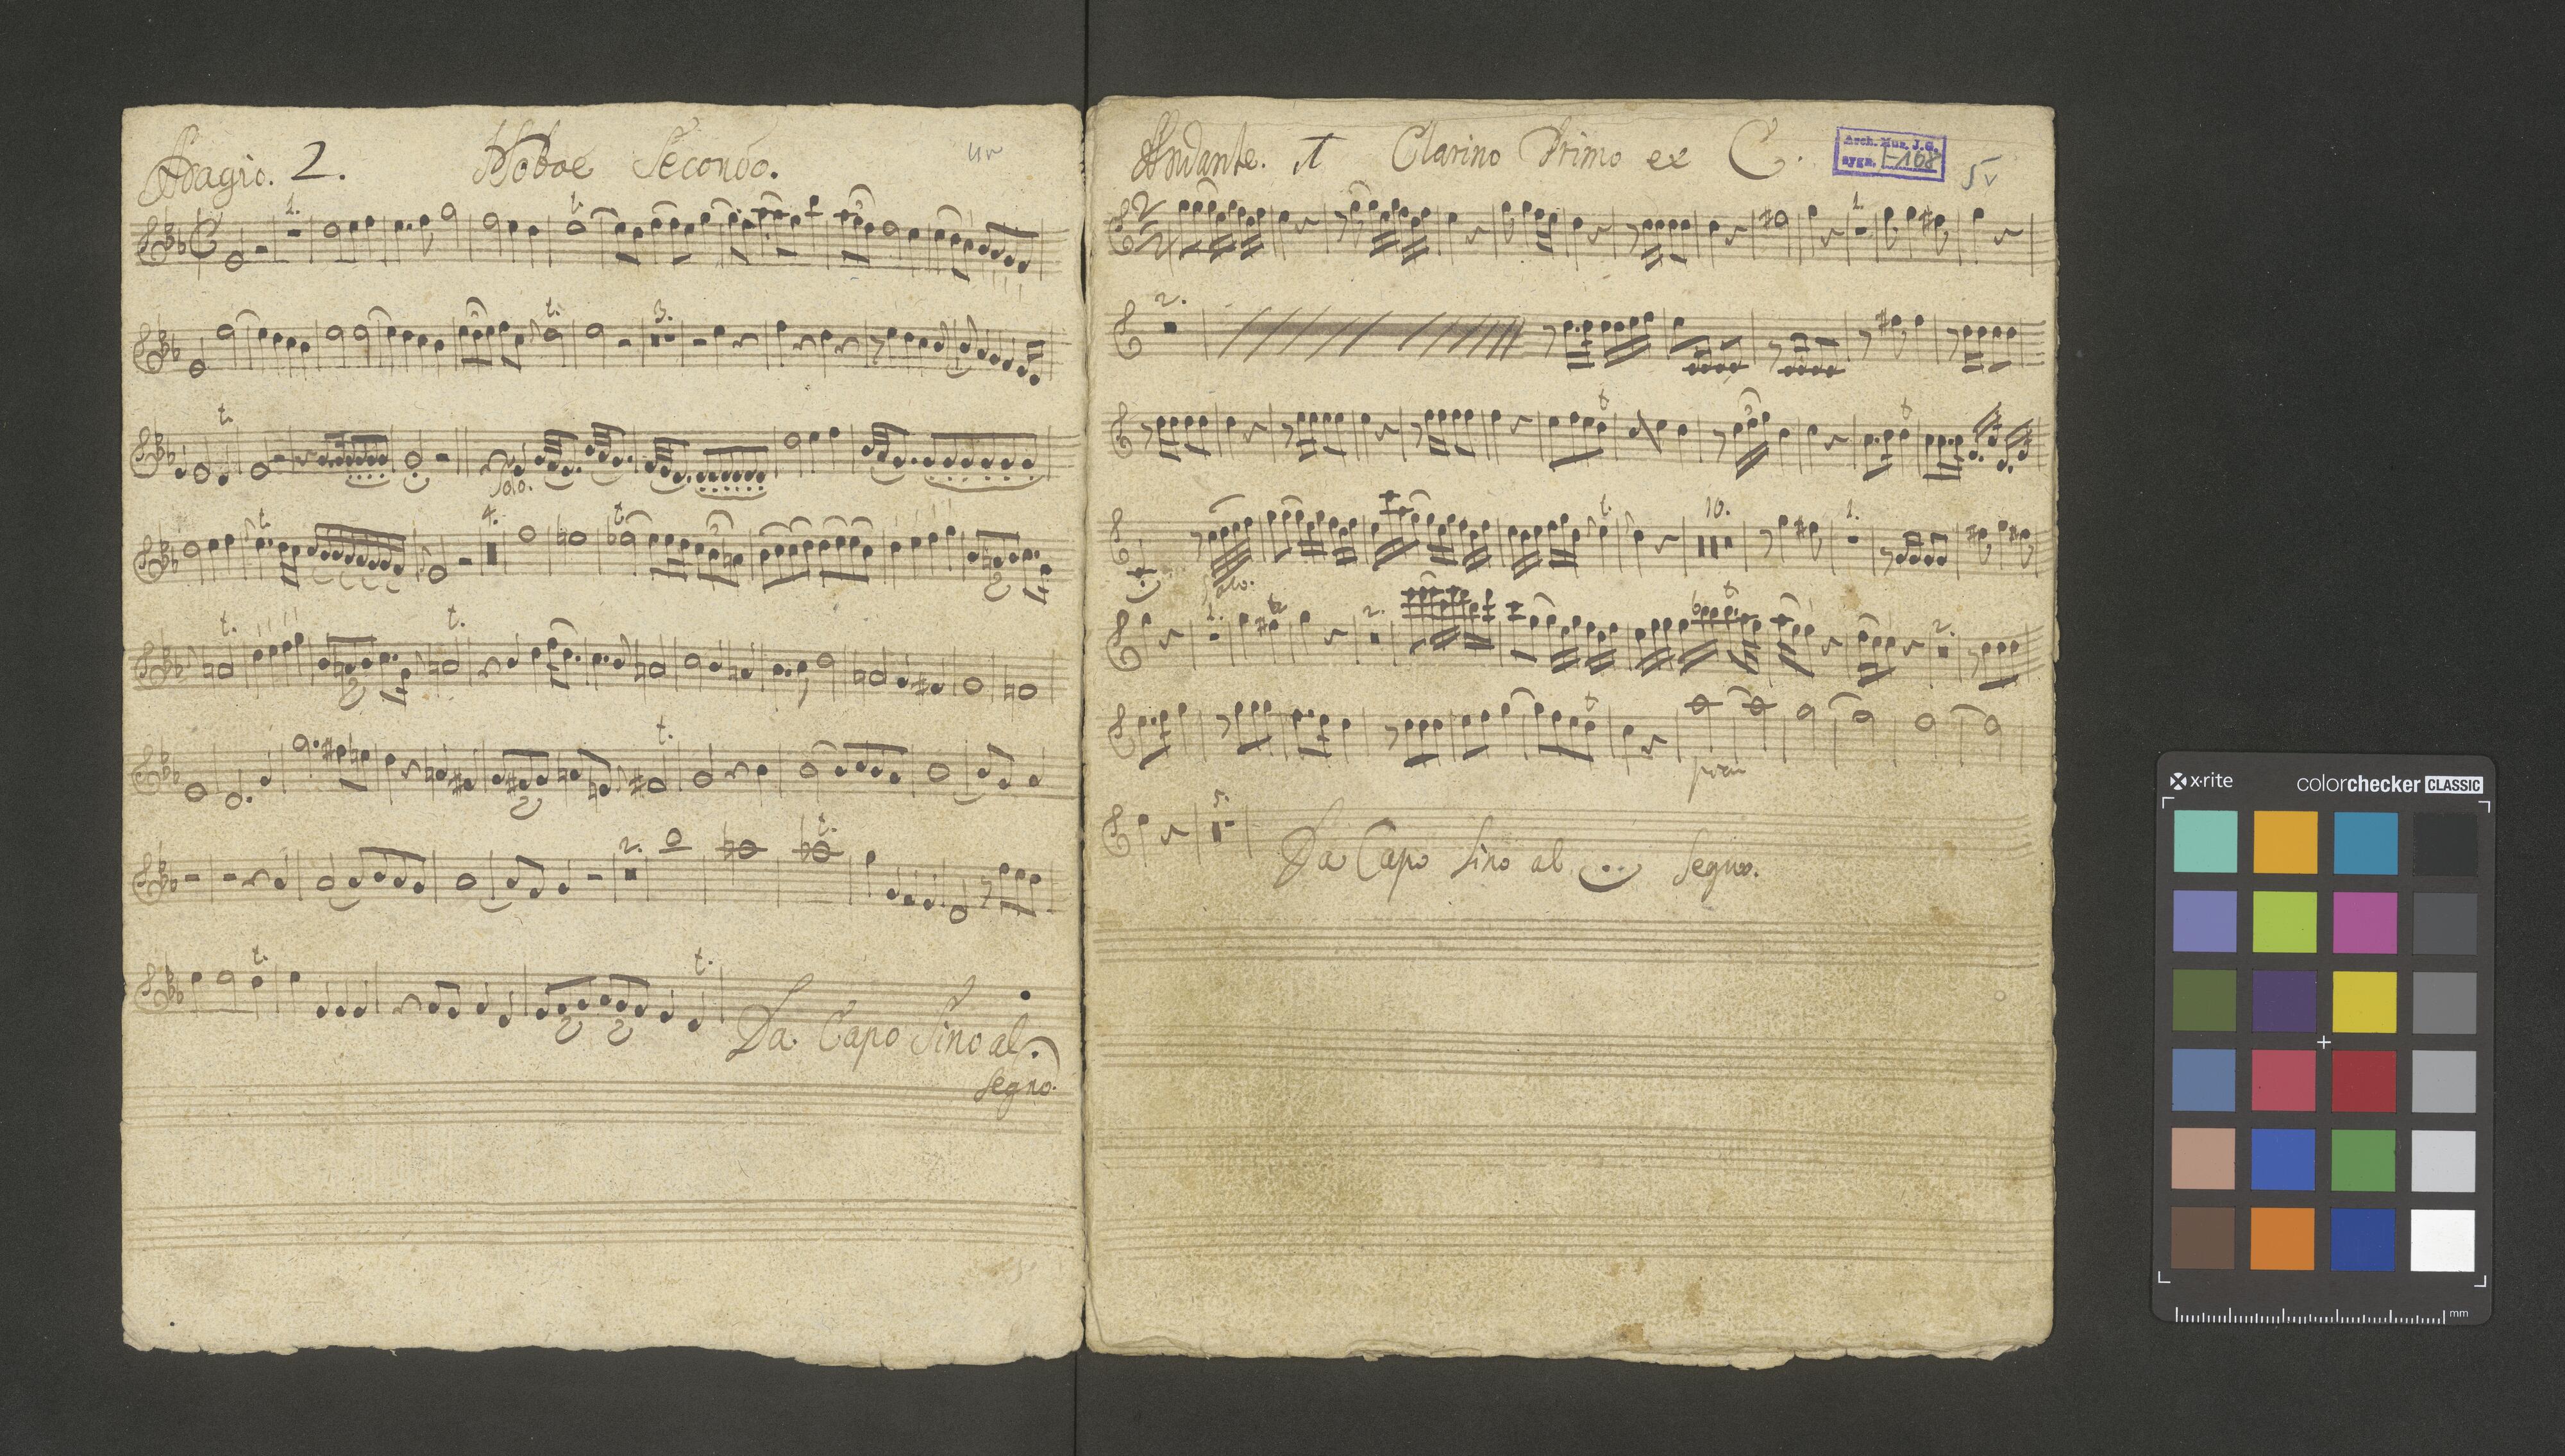 Adagio. 2. Hoboe Secondo.
1.
t.
t. 3.
t.
Solo.
t. 4. t.
t. t.
t.
2. t.
t. t.
Da Capo Sino al
Segno.
Andante. 1 Clarino Primo ex C.
Arch. Muz. J.G.
sygn. I-168
5v
1.
2.
t t
t. 10. 1.
Solo.
1. t 2. t 2.
t
5.
Da Capo Sino al Segno.
x·rite colorchecker CLASSIC
mm